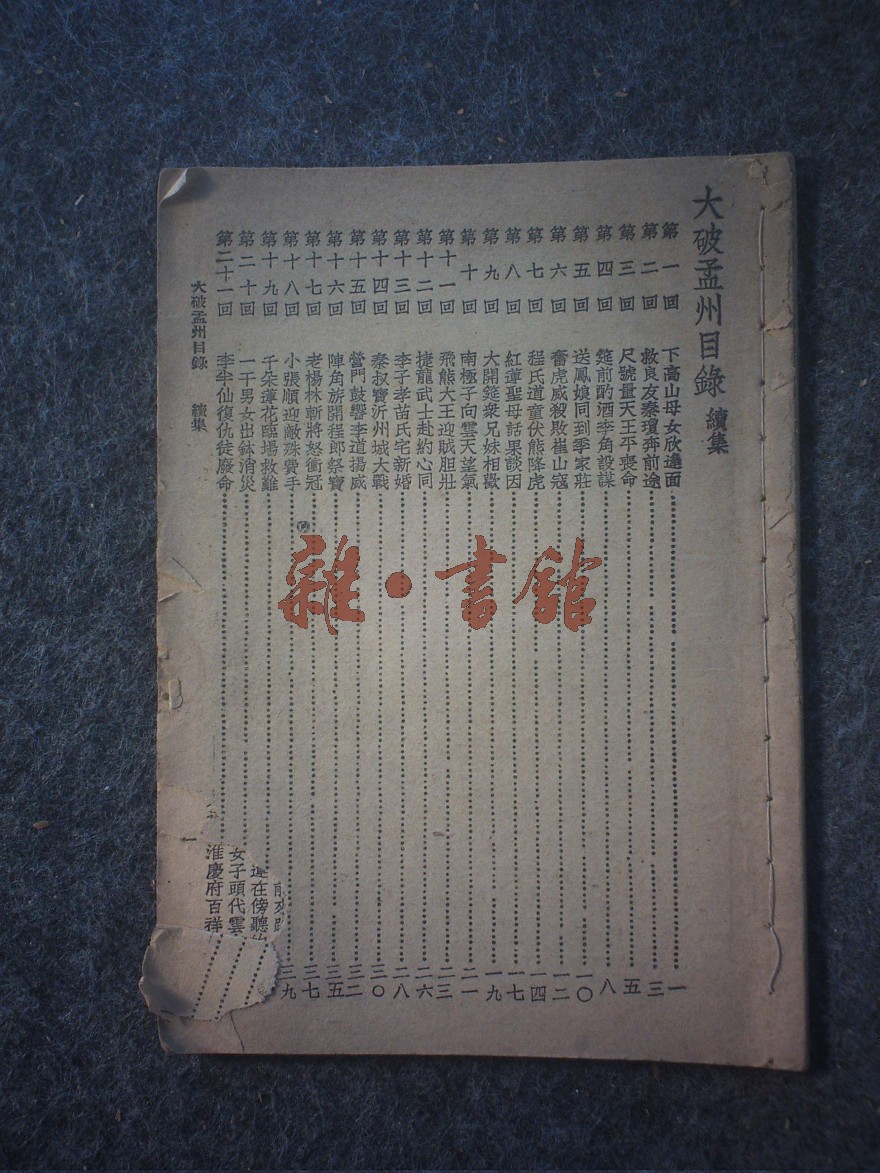 大破孟州目錄 續集
第一回 下高山母女欣逢面 一
第二回 救良友秦瓊奔前途 三
第三回 尺號量天王平喪命 五
第四回 筵前酌酒李角設謀 八
第五回 送鳳娘同到季家莊 一〇
第六回 奮虎威殺敗崔山寇 一二
第七回 程氏道童伏熊降虎 一四
第八回 紅蓮聖母話果談因 一七
第九回 大開筵衆兄妹相歡 一九
第十回 南極子向雲天望氣 二一
第十一回 飛熊大王迎賊胆壯 二三
第十二回 捷龍武士赴約心同 二六
第十三回 李子孝苗氏宅新婚 二八
第十四回 秦叔寶沂州城大戰 三〇
第十五回 營門鼓響李道揚威 三二
第十六回 陣角旂開程郎祭寶 三五
第十七回 老楊林斬將怒衝冠 三七
第十八回 小張順迎敵殊費手 三九
第十九回 千朵蓮花臨場救難
第二十回 一干男女出缽消災
第二十一回 李半仙復仇徒廢命
大破孟州目錄 續集
一
在傍聽
女子頭代雲
淮慶府百祥
雜·書館